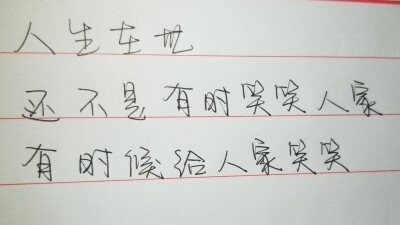 人生在世
还不是有时笑笑人家
有时候给人家笑笑